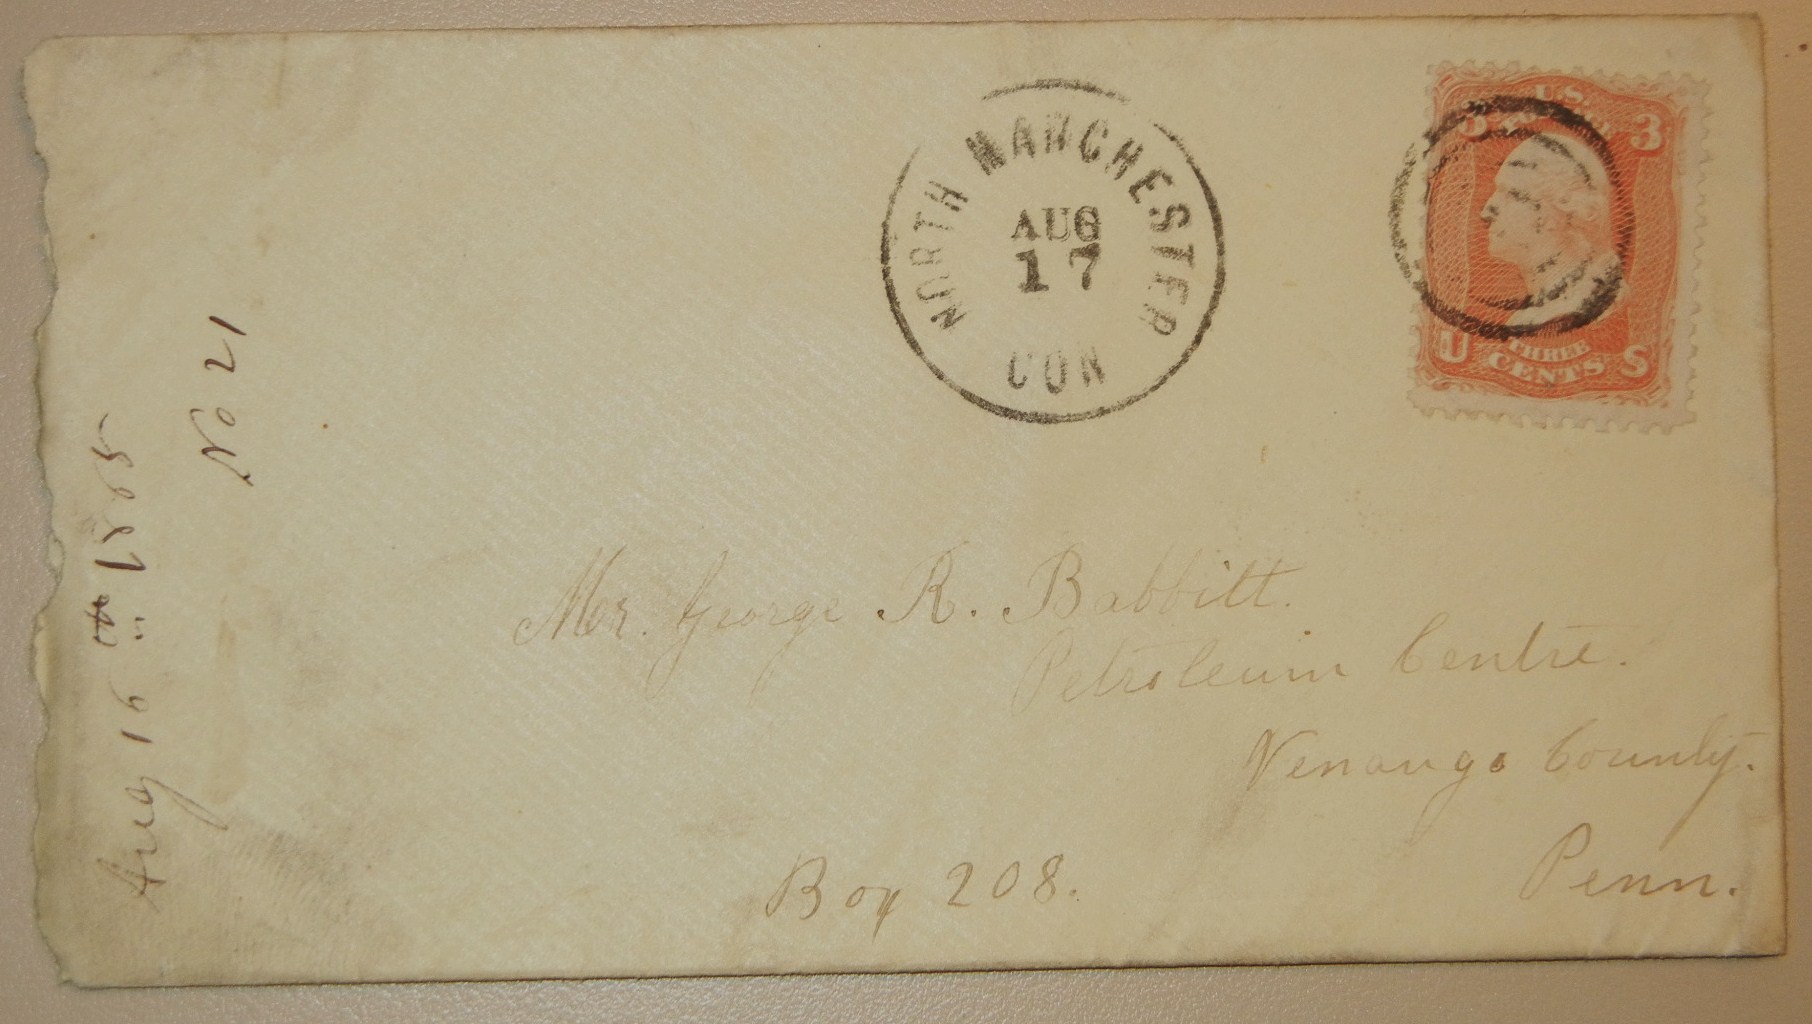 NORTH MANCHESTER
AUG
17
CON
U.S. POSTAGE
3 3
THREE
U CENTS S
No 21
Aug 16 th 1865
Mr. George R. Babbitt.
Petroleum Centre.
Venango County.
Penn.
Box 208.